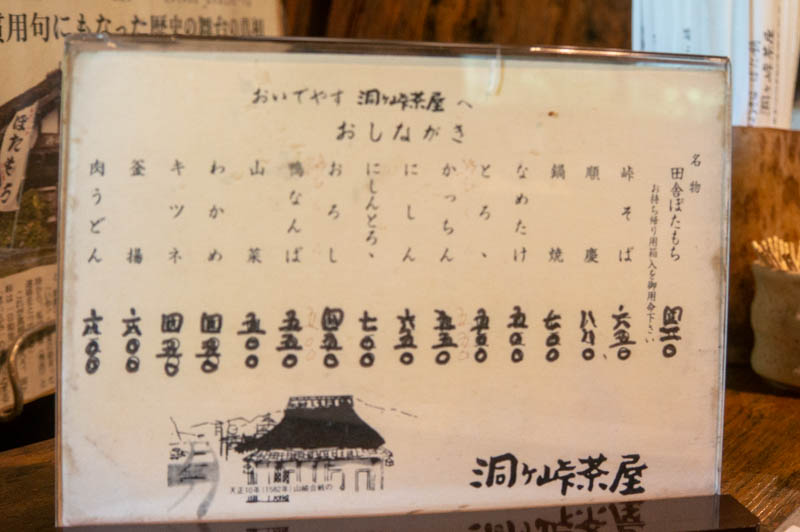 慣用句にもなった歴史の舞台の真相
ぼたもち
おいでやす 洞ヶ峠茶屋へ
おしながき
名物
田舎ぼたもち
お持ち帰り用箱入も御用命下さい
峠そば 六五〇
順慶
鍋焼 七〇〇
なめたけ 五〇〇
とろゝ 五〇〇
かっちん 五五〇
にしん 六五〇
にしんとろゝ 七〇〇
おろし 四五〇
鴨なんば 五五〇
山菜 五〇〇
わかめ 四五〇
キツネ 四五〇
釜揚 六〇〇
肉うどん 六〇〇
天正10年(1582年)山崎合戦の
洞ヶ峠茶屋
洞ヶ峠茶屋